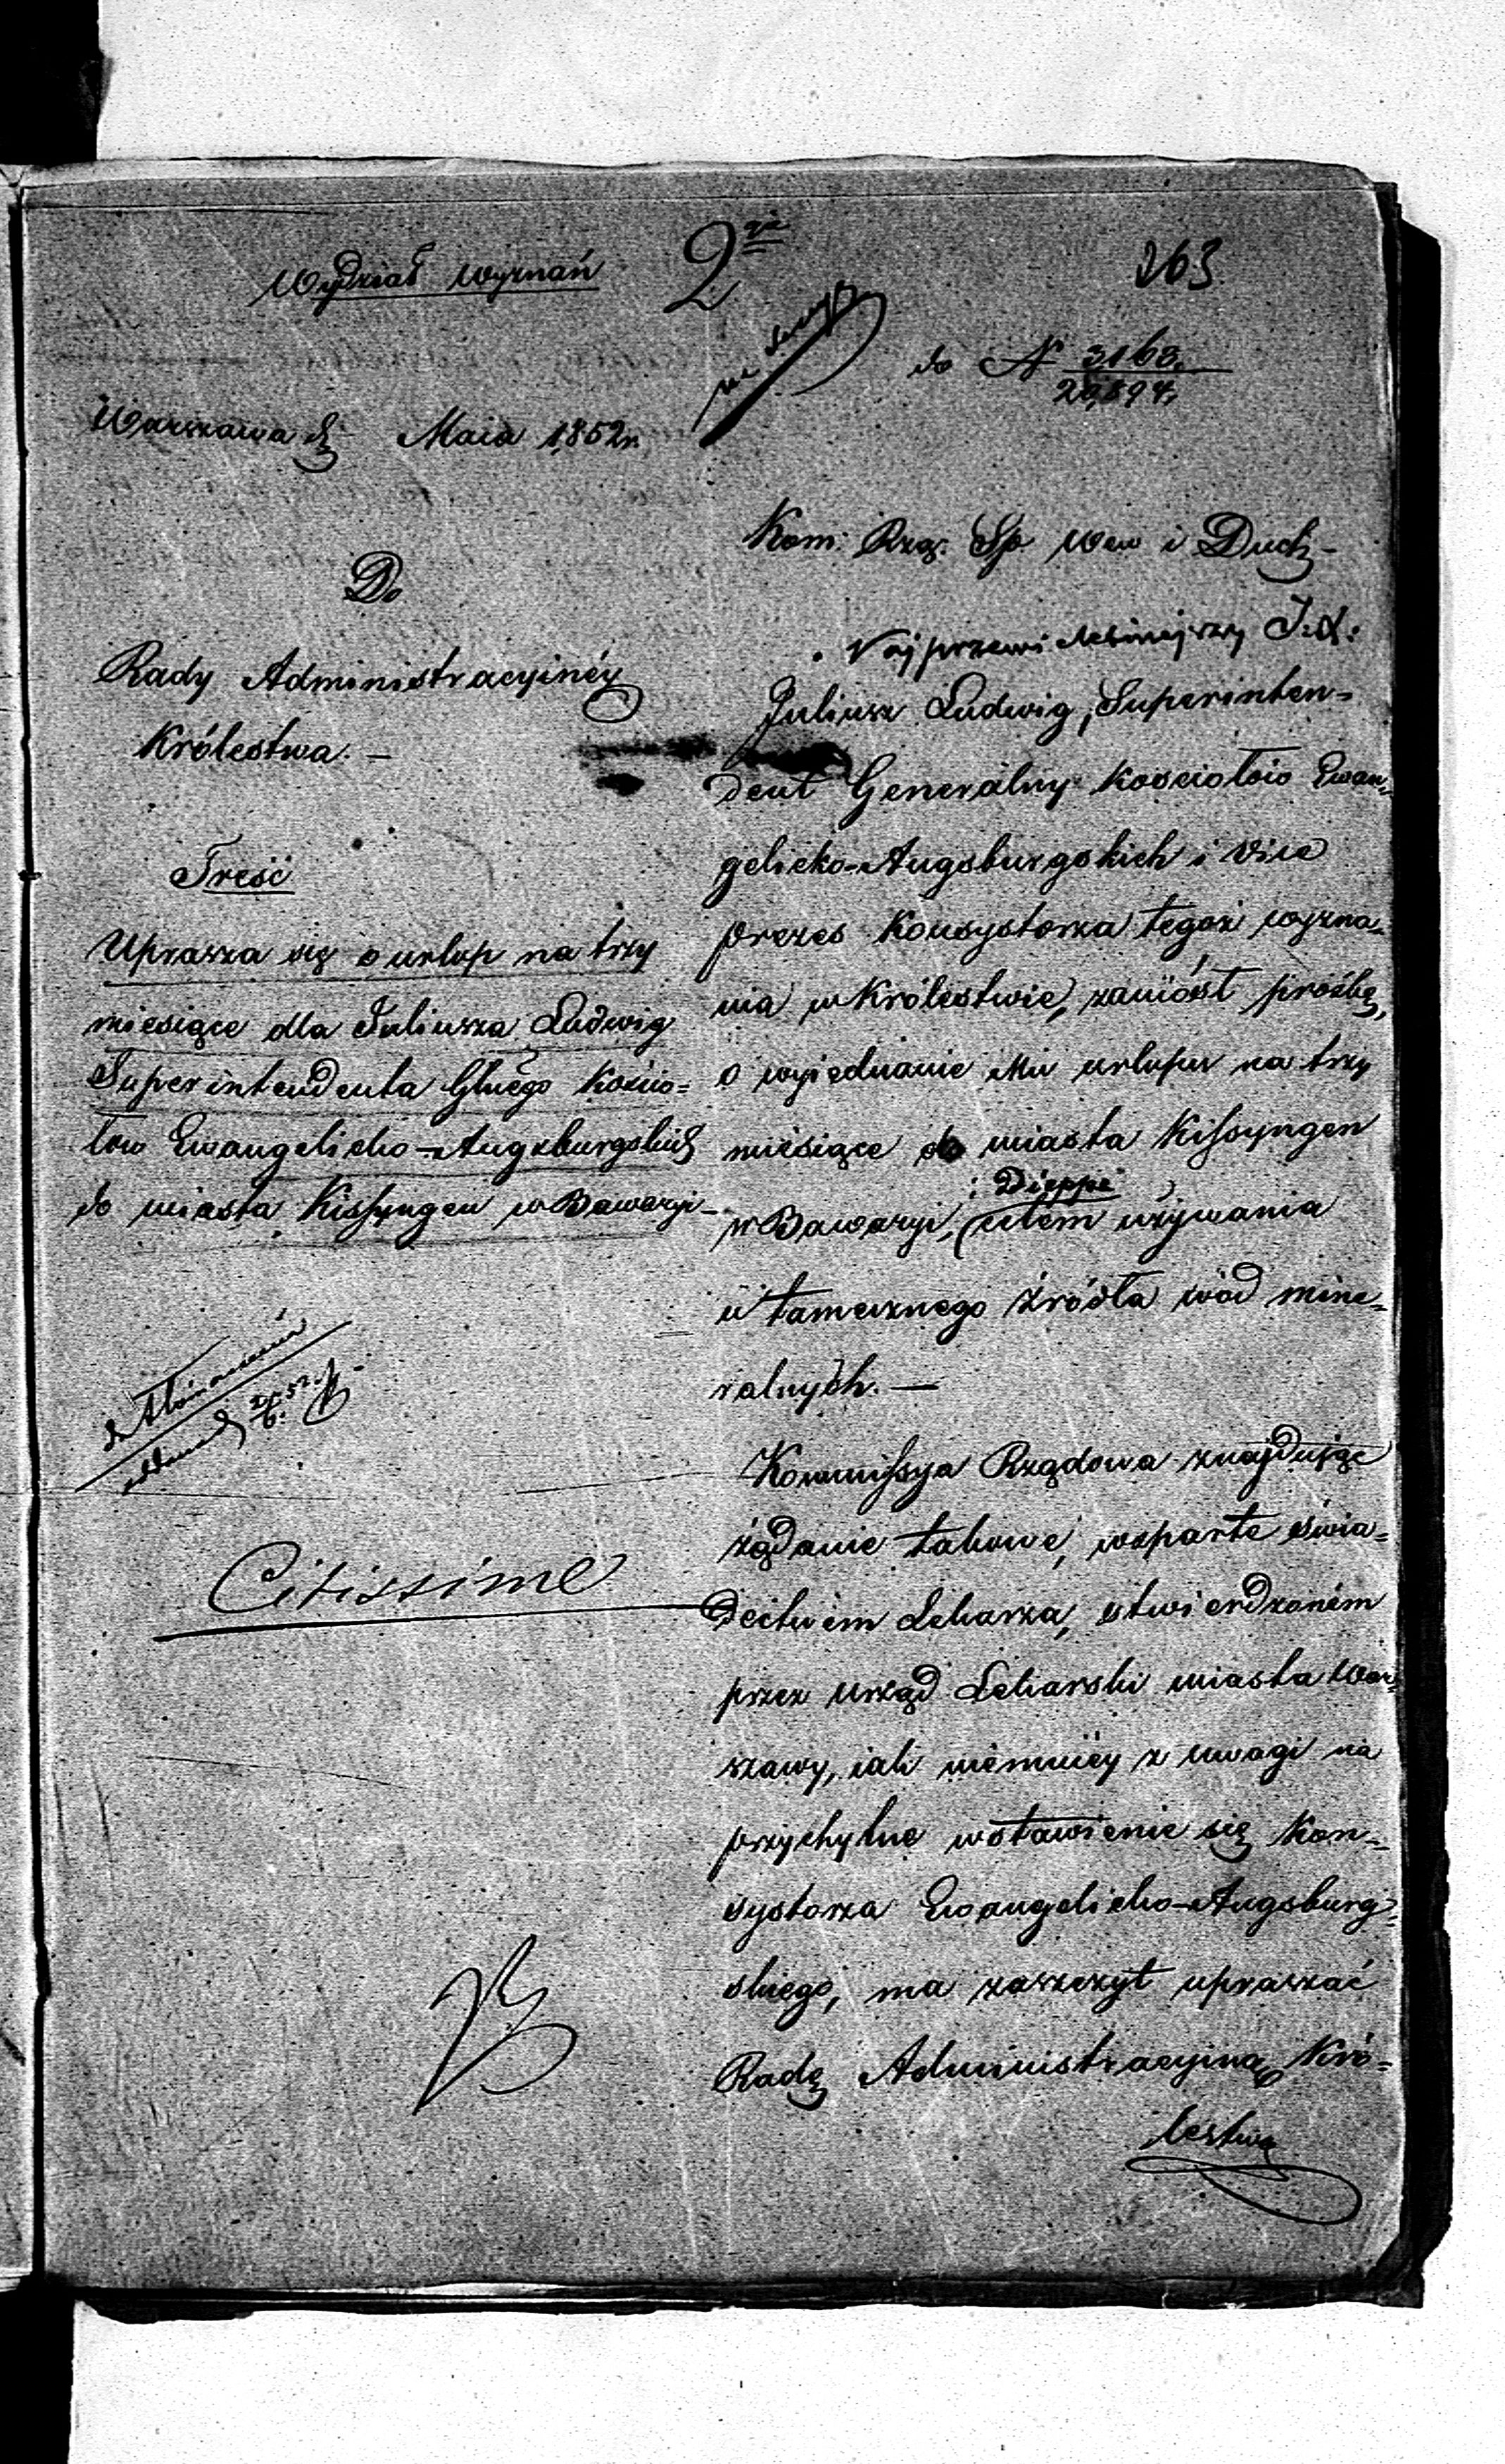 Wydział Wyznań
2gie
263
do No 3168.
20,894.
Warszawa d. Maia 1852 r.
Do
Rady Administracyinéy
Królestwa. —
Treść
Uprasza się o urlop na trzy
miesiące dla Juliusza Ludwig
Superintendenta Głnego Kościo=
łów Ewangelicko-Augsburgskich
do miasta Kissyngen w Bawaryi —
Citissime
Kom: Rzą: Sp. Wew i Duch –
Najprzewielebniejszy J.X.
Juliusz Ludwig, Superinten=
dent Generalny Kościołów Ewan=
gelicko-Augsburgskich i Vice
prezes Konsystorza tegoż wyzna=
nia w Królestwie, zaniósł prośbę,
o wyiednanie Mu urlopu na trzy
miesiące do miasta Kissyngen
w Bawaryi, i Dieppe celem używania
u tamecznego źródła wód mine=
ralnych. —
Kommissya Rządowa znajdując
żądanie takowe, wsparte świa=
dectwem Lekarza, stwierdzoném
przez Urząd Lekarski miasta War=
szawy, iak niemniéy z uwagi na
przychylne wstawienie się Kon=
systorza Ewangelicko-Augsburg=
skiego, ma zaszczyt upraszać
Radę Administracyiną Kró=
lestwa